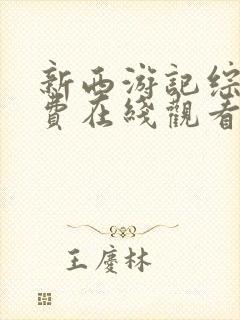 新西游記综
費在綫觀看
王慶林